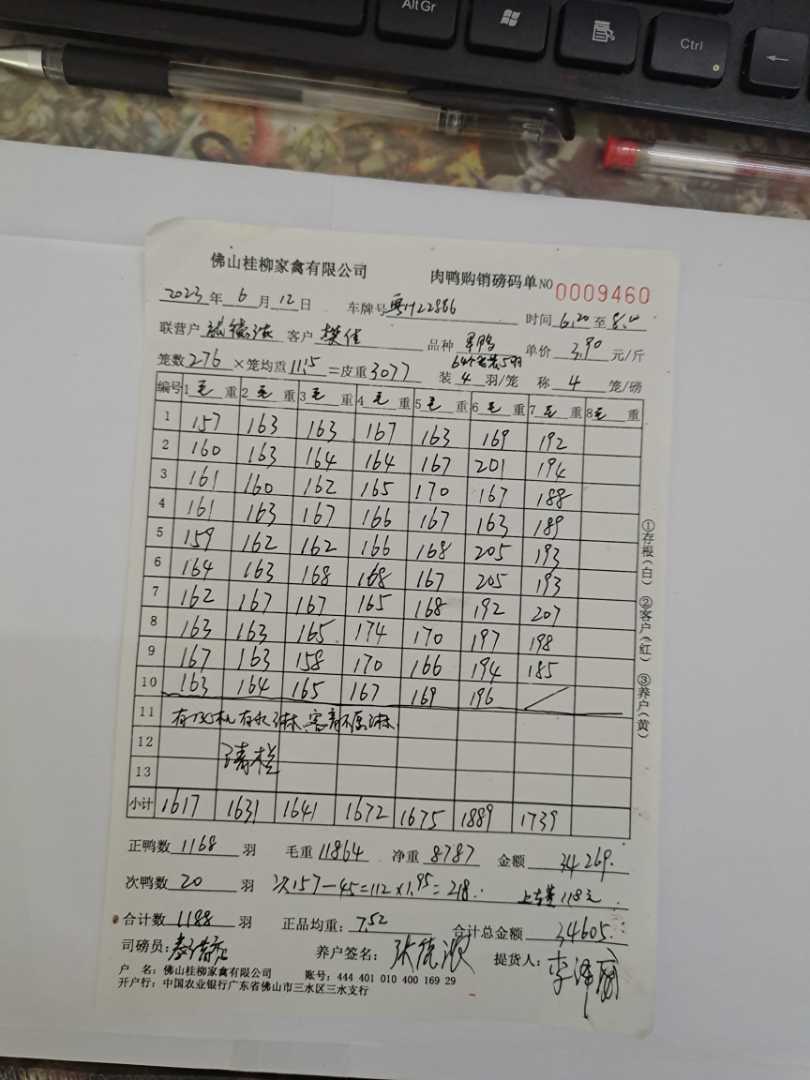 Alt Gr
Ctrl
佛山桂柳家禽有限公司 肉鸭购销磅码单 NO 0009460
2023年 6月 12日 车牌号 粤H22886 时间 6.20 至 8.0
联营户 张德浓 客户 樊佳 品种 单价 3.90 元/斤
笼数 276 ×笼均重 11.15 =皮重 3077 装 4 羽/笼 称 4 笼/磅
编号 1毛重 2毛重 3毛重 4毛重 5毛重 6毛重 7毛重 8毛重
1 157 163 163 167 163 169 192
2 160 163 164 164 167 201 194
3 161 160 162 165 170 167 188
4 161 163 167 166 167 163 189
5 159 162 162 166 168 205 193
6 164 163 168 168 167 205 193
7 162 167 167 165 168 192 207
8 163 163 165 174 170 197 198
9 167 163 158 170 166 194 185
10 163 164 165 167 169 196
11
12 清栏
13
小计 1617 1631 1641 1672 1675 1889 1739
正鸭数 1168 羽 毛重 11864 净重 8787 金额 34269.
次鸭数 20 羽 次157-45=112×1.95=218. 上车费118元
合计数 1188 羽 正品均重: 7.52 合计总金额 34605.
司磅员: 养户签名: 张德浓 提货人:
户 名: 佛山桂柳家禽有限公司 账号: 444 401 010 400 169 29
开户行: 中国农业银行广东省佛山市三水区三水支行
①存根(白) ②客户(红) ③养户(黄)